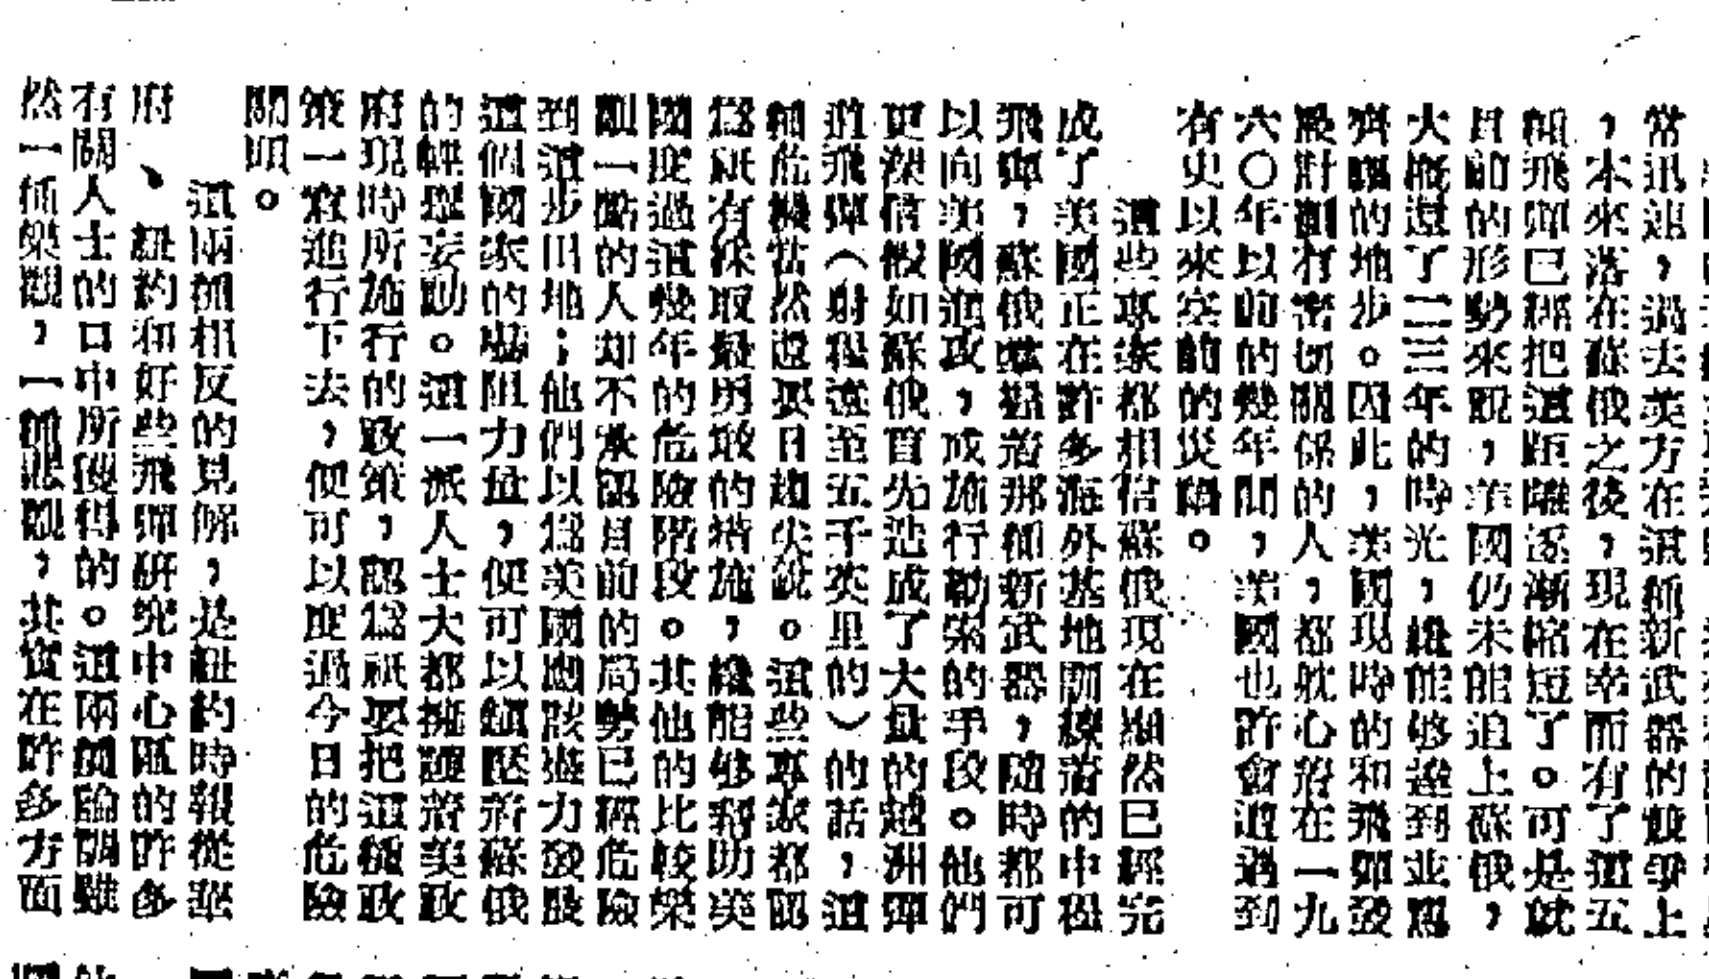 常迅速，過去英方在這種新武器的競爭上
，本來落在蘇俄之後，現在幸而有了這五
飛彈已經把這距離逐漸縮短了。可是就
目前的形勢來說，美國仍未能追上蘇俄，
大概還了二三年的時光，纔能够達到並駕
齊驅的地步。因此，美國現時的和飛彈發
展計劃有密切關係的人，都躭心着在一九
六〇年以前的幾年間，美國也許會遭遇到
有史以來空前的災禍。
這些專家都相信蘇俄現在顯然已經完
成了美國正在許多海外基地訓練着的中程
飛彈，蘇俄憑着那種新武器，隨時都可
以向美國進攻，或施行勒索的手段。他們
更深信假如蘇俄首先造成了大量的越洲彈
道飛彈（射程遠至五千英里的）的話，這
種危機當然還要日趨尖銳。這些專家都認
爲祇有採取最勇敢的措施，纔能够幫助美
國度過這幾年的危險階段。其他的比較樂
觀一點的人却不承認目前的局勢已經危險
到這步田地；他們以爲美國應該盡力發展
這個國家的嚇阻力量，便可以鎮壓着蘇俄
的輕舉妄動。這一派人士大都擁護着美政
府現時所施行的政策，認爲祇要把這種政
策一實進行下去，便可以度過今日的危險
關頭。
這兩種相反的見解，是紐約時報從華
府、紐約和好些飛彈研究中心區的許多
有關人士的口中所獲得的。這兩種論調雖
然一種樂觀，一種悲觀，其實在許多方面